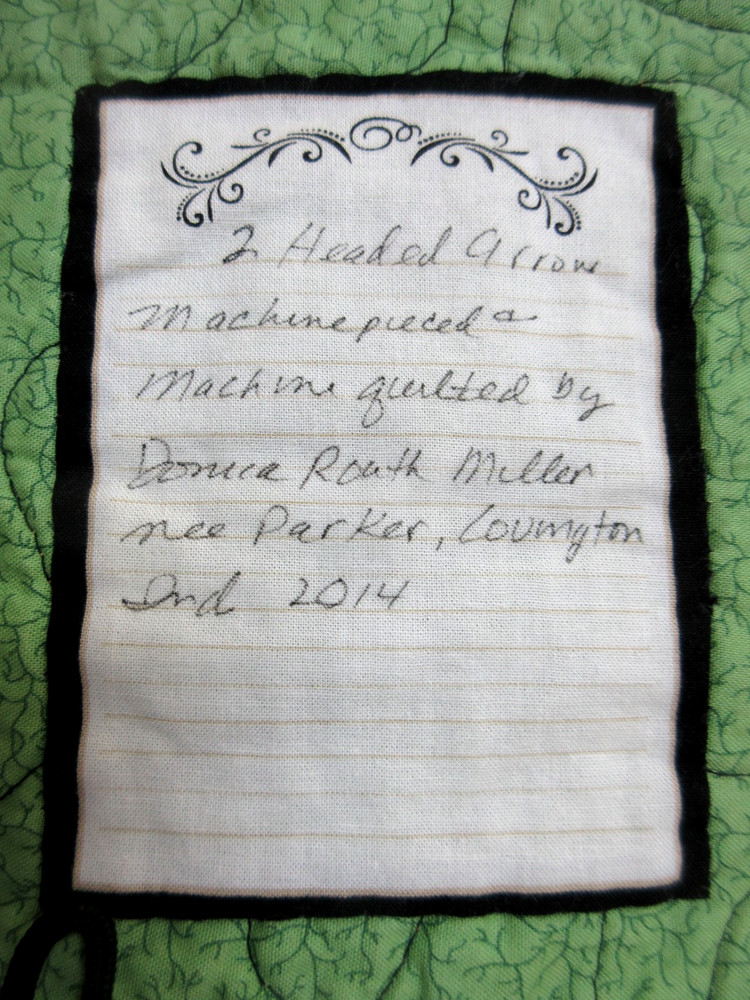 2 Headed Arrow
Machine pieced &
Machine quilted by
Routh Miller
nee Parker, Covington
Ind 2014